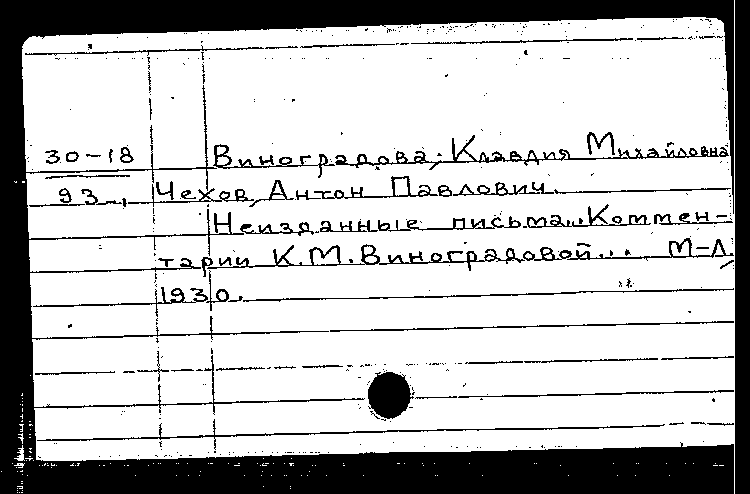 30-18 Виноградова, Клавдия Михайловна
93 Чехов, Антон Павлович.
Неизданные письма.. Коммен-
тарии К.М.Виноградовой... М-Л.
1930.